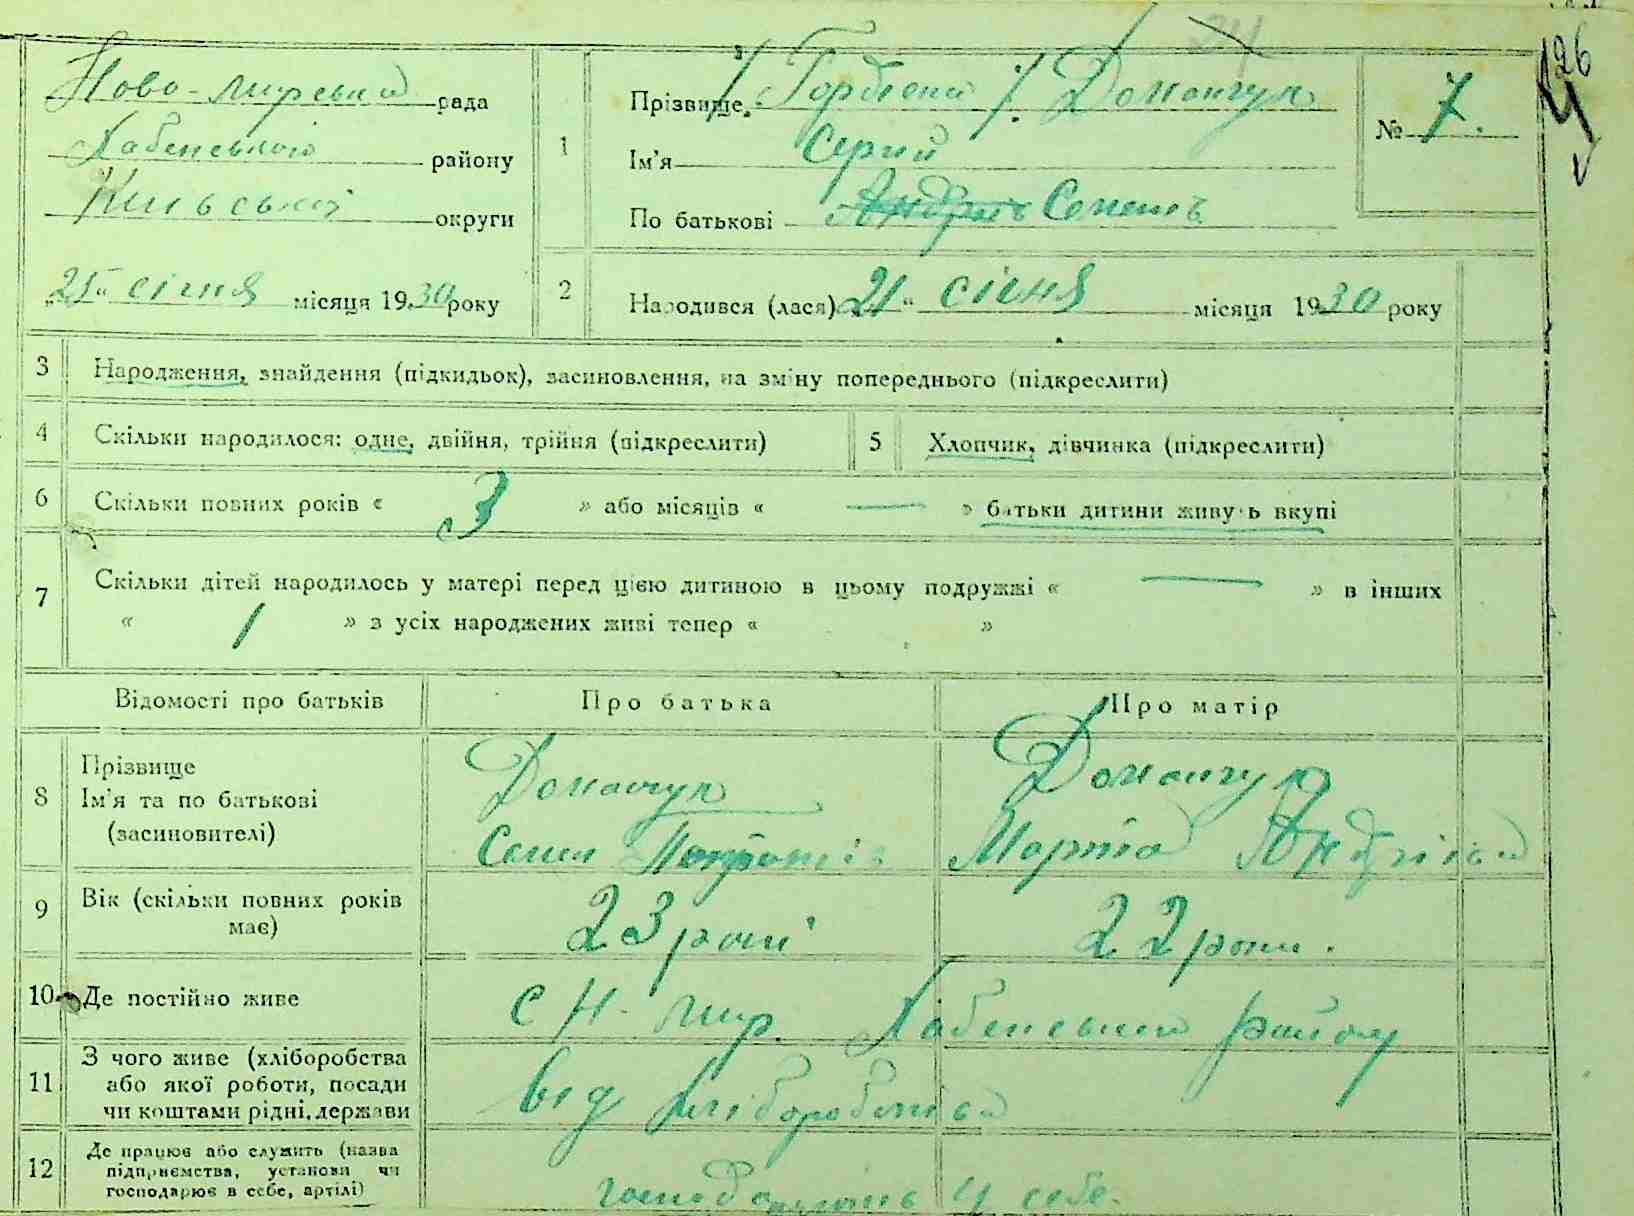 126
Ново-мирська рада
Хабенського району
Київської округи
"25" січня місяця 1930 року
1
Прізвище Домончук
Ім'я Сергий
По батькові Семенів
№ 7.
2
Народився (лася) "21" січня місяця 1930 року
3
Народження, знайдення (підкидьок), засиновлення, на зміну попереднього (підкреслити)
4
Скільки народилося: одне, двійня, трійня (підкреслити)
5
Хлопчик, дівчинка (підкреслити)
6
Скільки повних років « 3 » або місяців « — » батьки дитини живуть вкупі
7
Скільки дітей народилось у матері перед цією дитиною в цьому подружжі « — » в інших
« 1 » з усіх народжених живі тепер « »
Відомості про батьків
Про батька
Про матір
8
Прізвище
Ім'я та по батькові
(засиновителі)
Домончук
Семен
Домончук
Марта Андріївна
9
Вік (скільки повних років
має)
23 рокі
22 роки.
10
Де постійно живе
с Н-мир. Хабенського району
11
З чого живе (хліборобства
або якої роботи, посади
чи коштами рідні, держави
від хліборобства
12
Де працює або служить (назва
підприємства, установи чи
господарює в себе, артілі)
у себе.